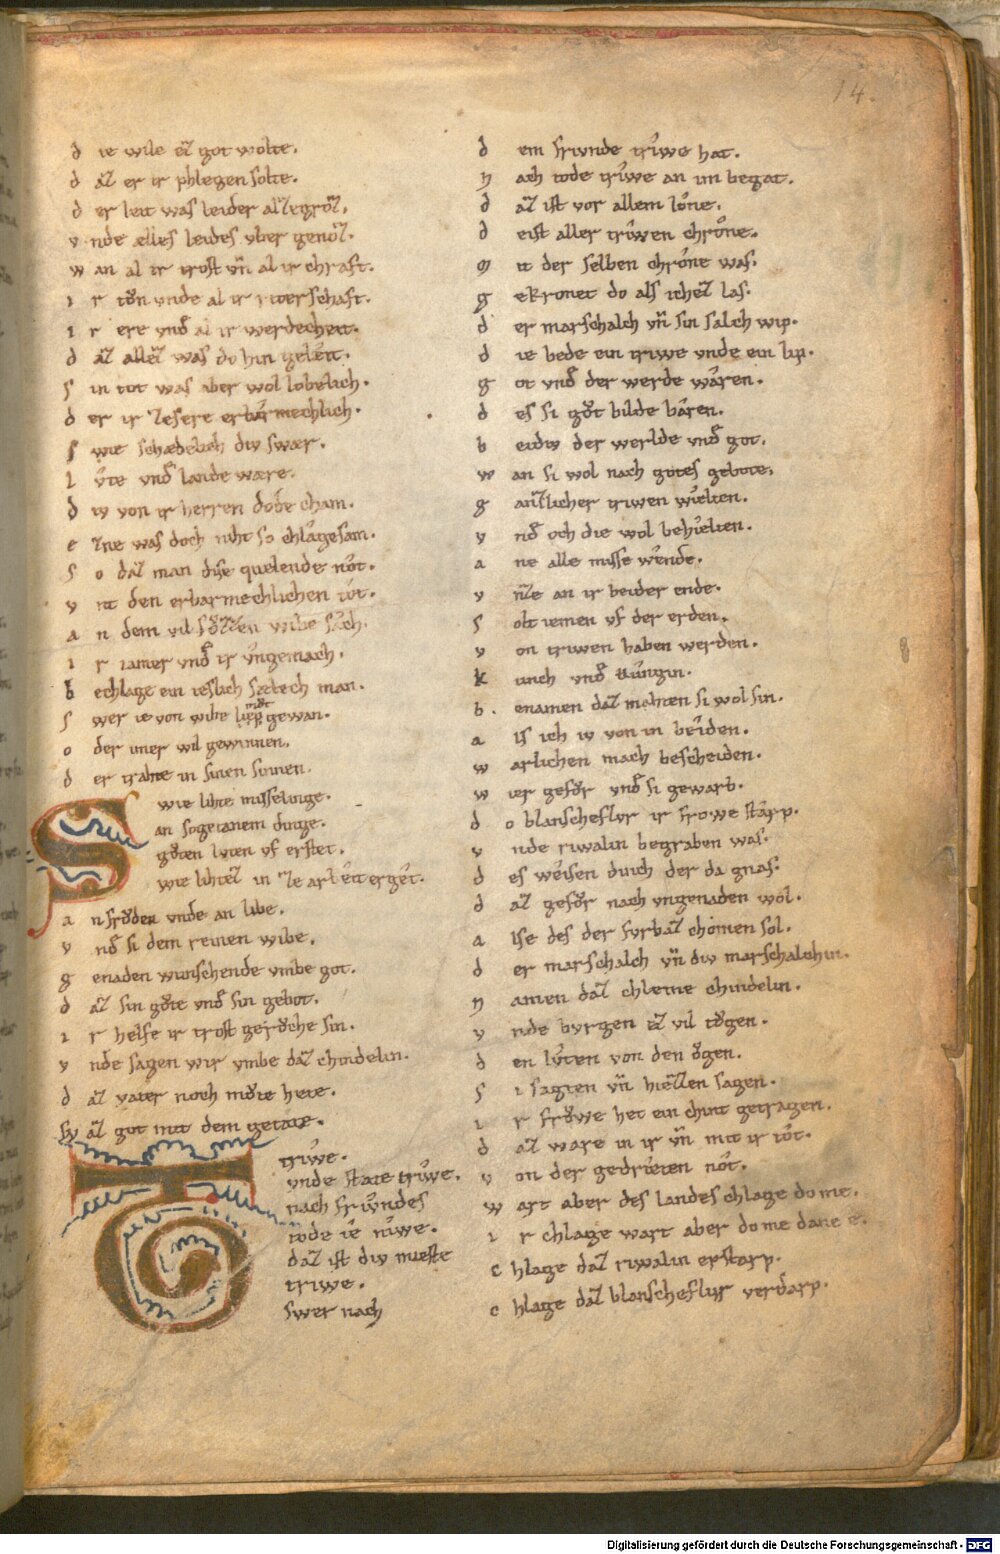 14.
d ie wile eꝫ got wolte.
d aꝫ er ir phlegen solte.
d er leit was leider alꝫe groꝫ.
v nde ælles leides vber genoꝫ.
w an al ir trost vn̄ al ir chraft.
i r tv̊n vnde al ir riterschaft.
i r ere vnd̄ al ir werdecheit.
d aꝫ alleꝫ was do hin geleit.
s in tot was aber wol lobelich.
d er ir ꝫesere erbarmechlich.
s wie schædelich div swær.
l v̂te vnd̄ lande wære.
d iv von ir herren dode cham.
e ꝫne was doch niht so chlagesam.
s o daꝫ man dise quelende not.
v nt den erbarmechlichen tot.
a n dem vil sv̊ꝫꝫen wibe sach.
i r iamer vnd̄ ir vngemach.
b echlage ein ieslich sælech man.
s wer ie von wibe liep mv̊t gewan.
o der imer wil gewinnen.
d er trahte in sinen sinnen.
S wie lihte misselinge.
an sogetanem dinge.
gv̊ten lvten vf erstet.
wie lihteꝫ in ꝫe arbeit erget.
a n frv̊den vnde an libe.
v nd̄ si dem reinen wibe.
g enaden wunschende vmbe got.
d aꝫ sin gv̊te vnd̄ sin gebot.
i r helfe ir trost gerv̊che sin.
v nde sagen wir vmbe daꝫ chindelin.
d aꝫ vater noch mv̊te hete.
sw aꝫ got mit dem getæte.
T triwe.
vnde stæte triwe.
nach frivndes
tode ie niwe.
daꝫ ist div mæste
triwe.
swer nach
d em frivnde triwe hat.
n ach tode triwe an im begat.
d aꝫ ist vor allem lone.
d eist aller triwen chrone.
m it der selben chrone was.
g ekronet do als icheꝫ las.
d er marschalch vn̄ sin salich wip.
d ie bede ein triwe vnde ein lip.
g ot vnd̄ der werde waren.
d es si gv̊t bilde baren.
b eidiv der werlde vnd̄ got.
w an si wol nach gotes gebote.
g anꝫlicher triwen wielten.
v nd̄ och die wol behielten.
a ne alle misse wende.
v nꝫe an ir beider ende.
s olt iemen vf der erden.
v on triwen haben werden.
k unich vnd̄ kungin.
b enamen daꝫ mohten si wol sin.
a ls ich iv von in beiden.
w ærlichen mach bescheiden.
w ier gefv̊r vnd̄ si gewarb.
d o blanscheflvr ir frowe starp.
v nde riwalin begraben was.
d es weisen dinch der da gnas.
d aꝫ gefv̊r nach vngenaden wol.
a lse des der fvrbaꝫ chomen sol.
d er marschalch vn̄ div marschalchin.
n amen daꝫ chleine chindelin.
v nde byrgen eꝫ vil tv̊gen.
d en lv̂ten von den ǒgen.
s i sagten vn̄ hieꝫꝫen sagen.
i r frǒwe het ein chint getragen.
d aꝫ ware in ir vn̄ mit ir tot.
v on der gedrieten not.
w art aber des landes chlage do me.
i r chlage wart aber do me dane e.
c hlage daꝫ riwalin erstarp.
c hlage daꝫ blanscheflvr verdarp.
Digitalisierung gefördert durch die Deutsche Forschungsgemeinschaft - DFG